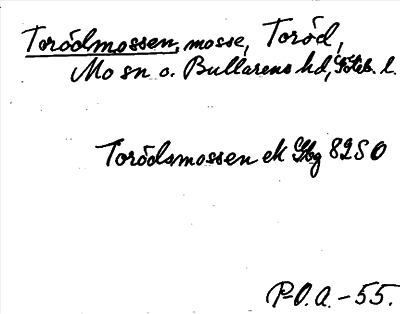 Torödmossen, mosse, Toröd,
Mo sn o. Bullarens hd, Göteb. l.
Torödsmossen ek Gbg 82SO
P-O.A.-55.